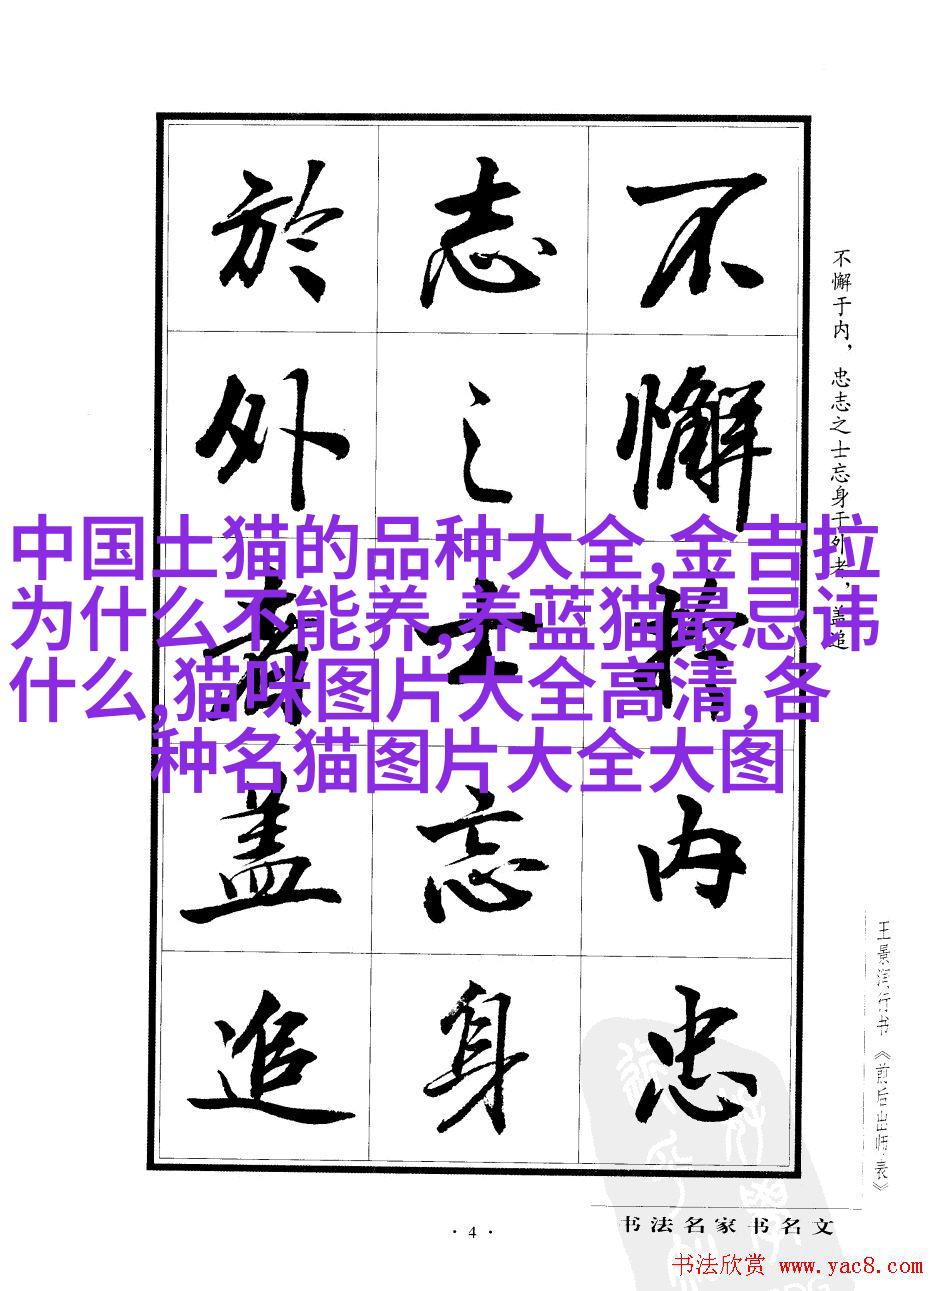 不懈於内忠
志之士忘身
於外者盖追
不懈于内，忠志之士忘身于外者，盖追
中国土猫的品种大全,金吉拉
为什么不能养,养蓝猫最忌讳
什么,猫咪图片大全高清,各
种名猫图片大全大图
王景行书《前后出师表》
书法名家书名文
· 4 ·
书法欣赏 www.yac8.com